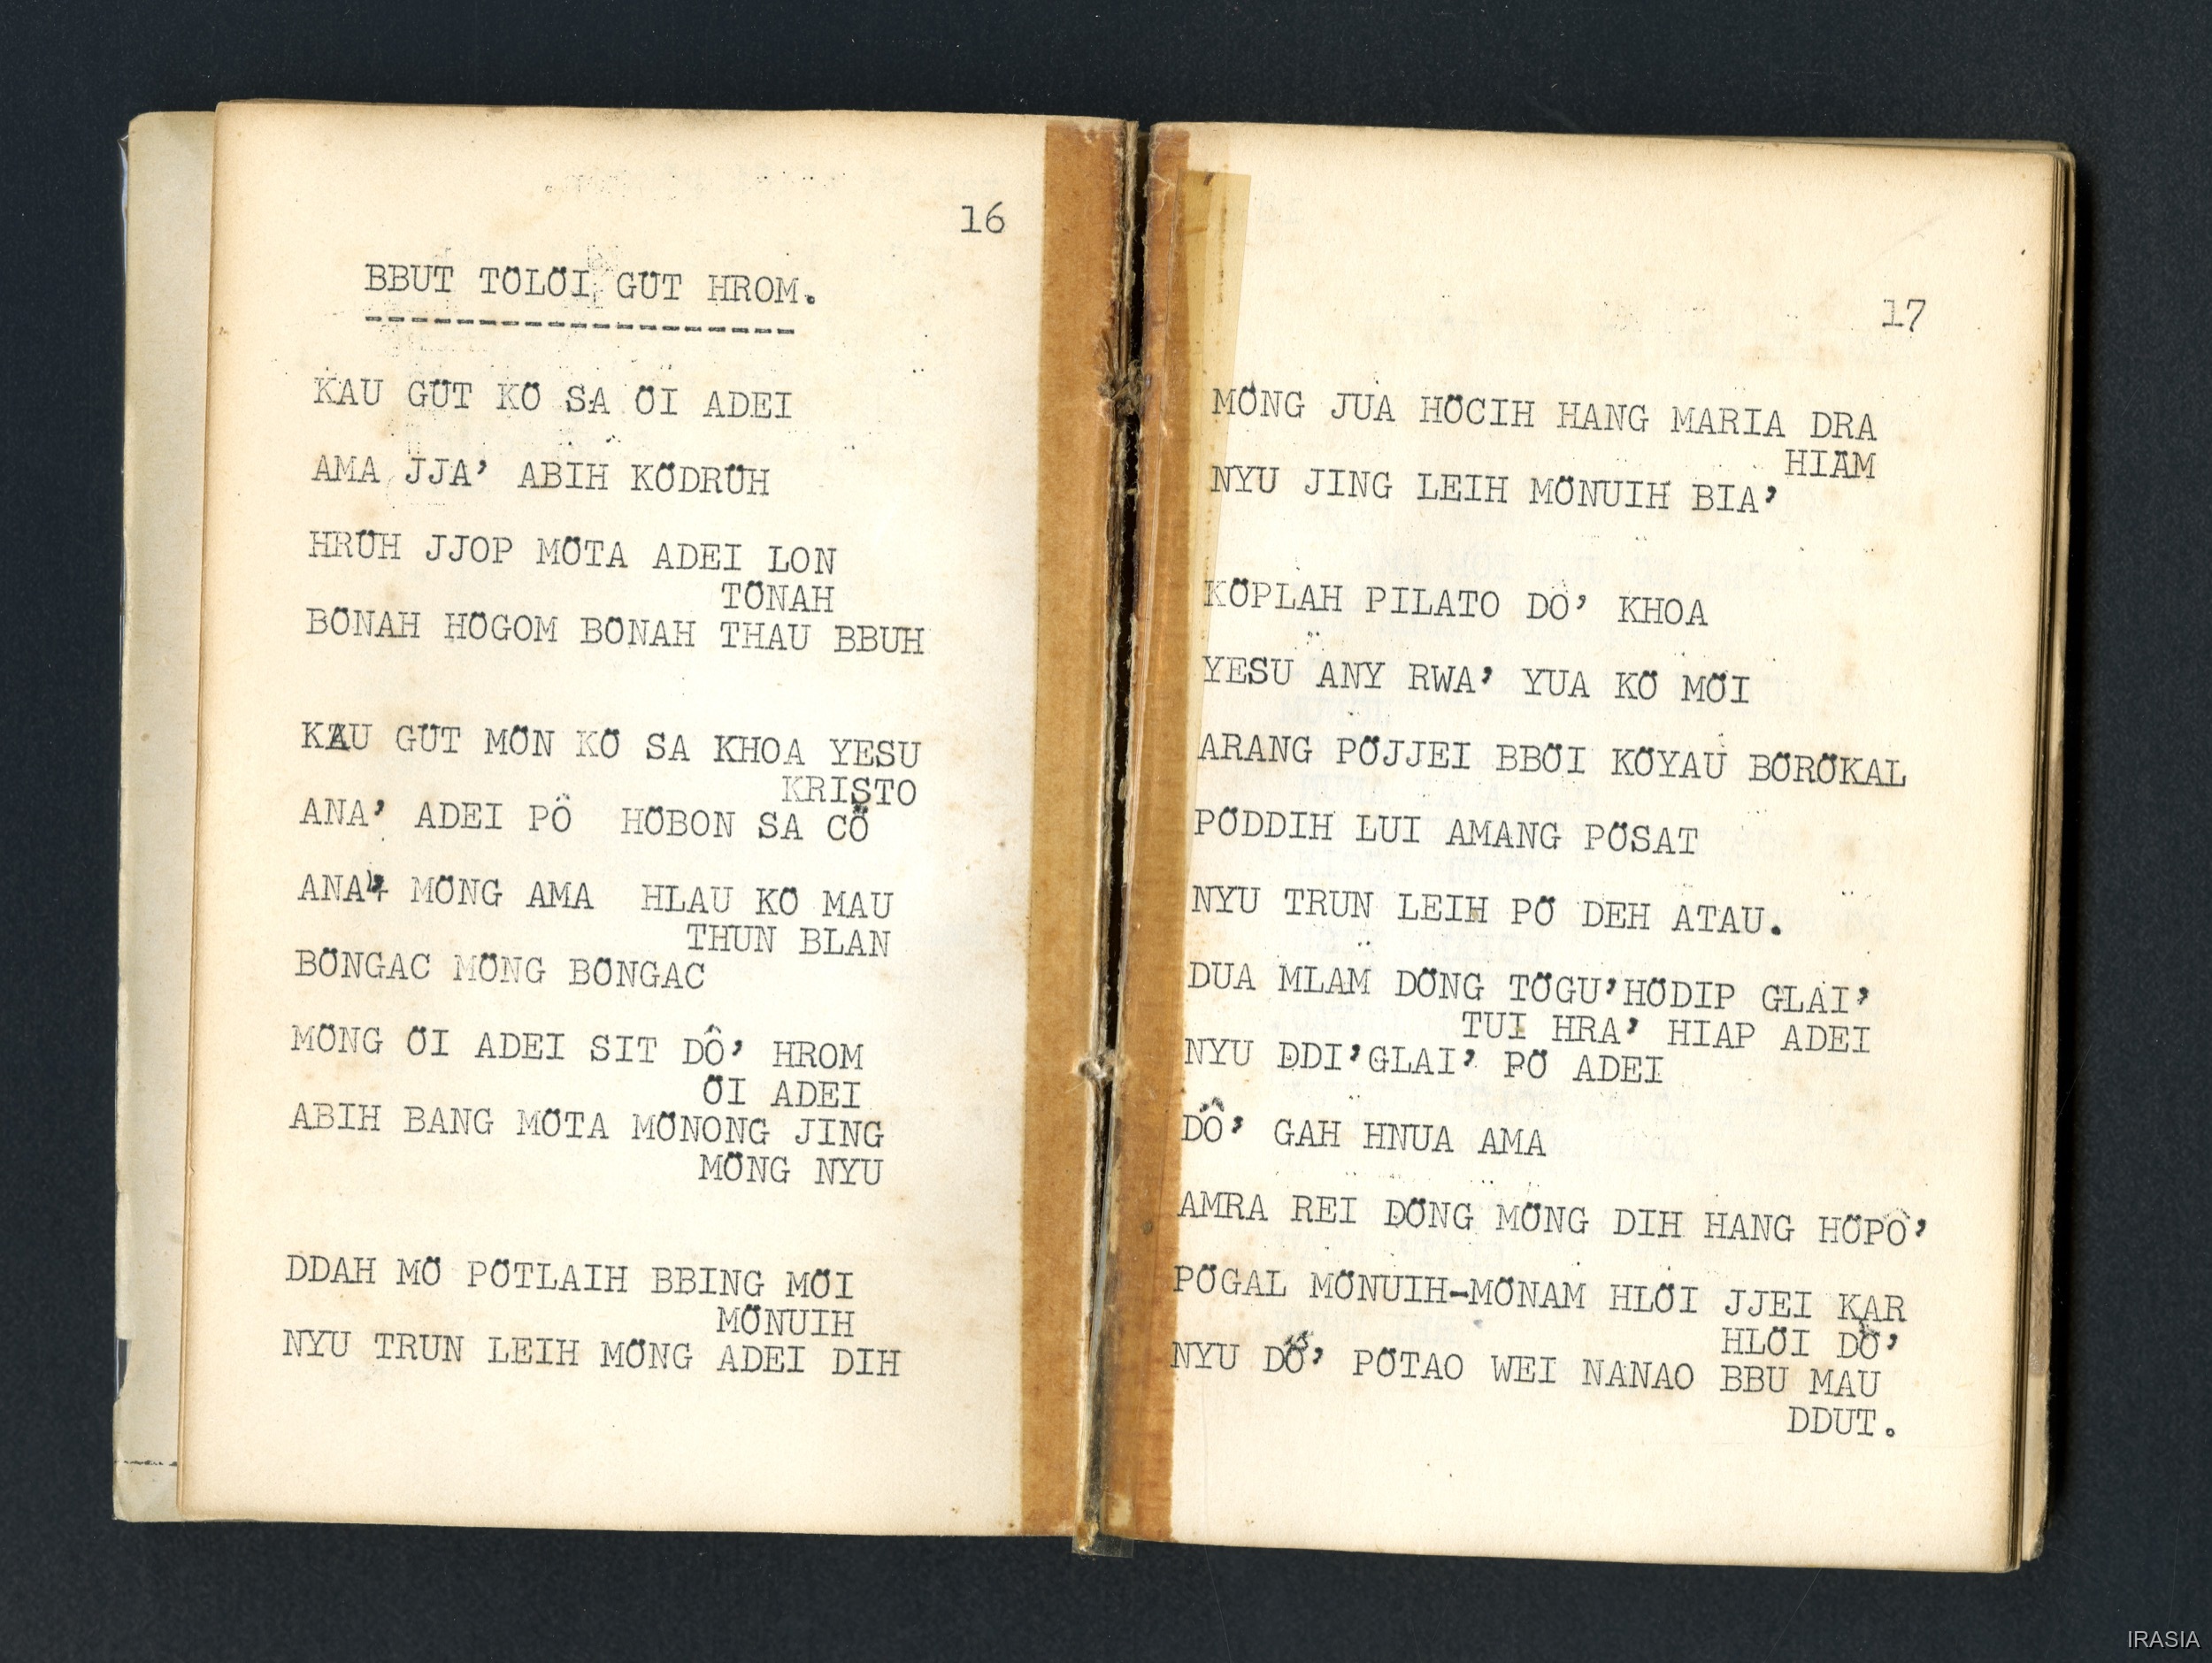 16
BBUT TÖLÖI GÜT HROM.
KAU GÜT KÖ SA ÖI ADEI
AMA JJA' ABIH KÖDRÜH
HRÜH JJOP MÖTA ADEI LON
TÖNAH
BÖNAH HÖGOM BÖNAH THAU BBUH
KAU GÜT MÖN KÖ SA KHOA YESU
KRISTO
ANA' ADEI PÖ HÖBON SA CÖ
ANA' MÖNG AMA HLAU KÖ MAU
THUN BLAN
BÖNGAC MÖNG BÖNGAC
MÖNG ÖI ADEI SIT DÔ' HROM
ÖI ADEI
ABIH BANG MÖTA MÖNONG JING
MÖNG NYU
DDAH MÖ PÖTLAIH BBING MÖI
MÖNUIH
NYU TRUN LEIH MÖNG ADEI DIH
17
MÖNG JUA HÖCIH HANG MARIA DRA
HIAM
NYU JING LEIH MÖNUIH BIA'
KÖPLAH PILATO DÔ' KHOA
YESU ANY RWA' YUA KÖ MÖI
ARANG PÖJJEI BBÖI KÖYAU BÖRÖKAL
PÖDDIH LUI AMANG PÖSAT
NYU TRUN LEIH PÖ DEH ATAU.
DUA MLAM DÖNG TÖGU'HÖDIP GLAI'
TUI HRA' HIAP ADEI
NYU DDI'GLAI' PÖ ADEI
DÔ' GAH HNUA AMA
AMRA REI DÖNG MÖNG DIH HANG HÖPÔ'
PÖGAL MÖNUIH-MÖNAM HLÖI JJEI KAR
HLÖI DÔ'
NYU DÔ' PÖTAO WEI NANAO BBU MAU
DDUT.
IRASIA